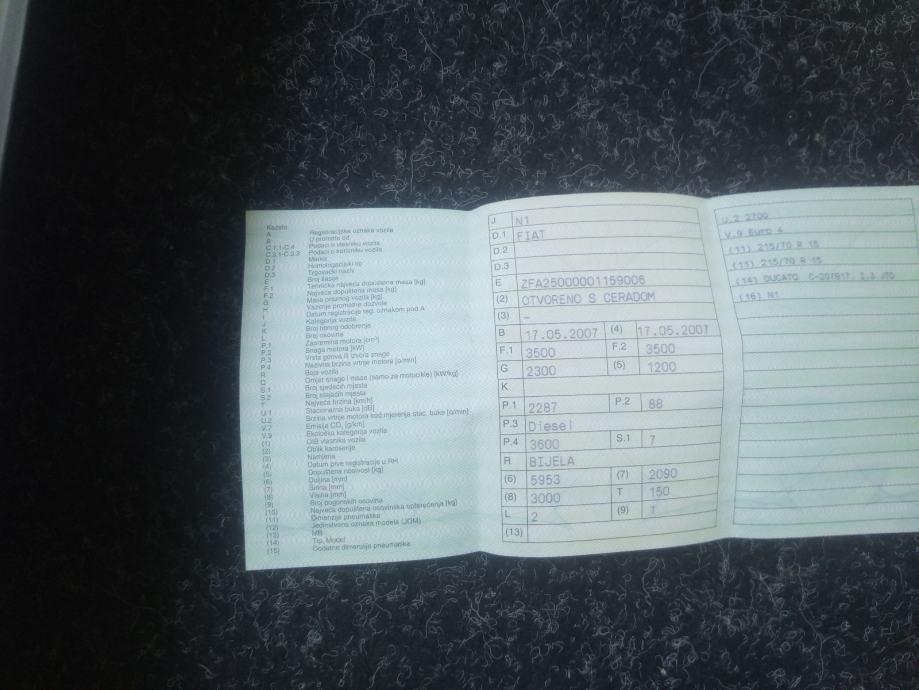 Kazalo
A Registracijska oznaka vozila
B U prometu od
C.1.1-C.4 Podaci o vlasniku vozila
C.3.1-C.3.3 Podaci o korisniku vozila
D.1 Marka
D.2 Homologacijski tip
D.3 Trgovački naziv
E Broj šasije
F.1 Tehnička najveća dopuštena masa [kg]
F.2 Najveća dopuštena masa [kg]
G Masa praznog vozila [kg]
H Važenje prometne dozvole
I Datum registracije reg. oznakom pod A
J Kategorija vozila
K Broj tipnog odobrenja
L Broj osovina
P.1 Zapremina motora [cm³]
P.2 Snaga motora [kW]
P.3 Vrsta goriva ili izvora snage
P.4 Nazivna brzina vrtnje motora [o/min]
R Boja vozila
Q Omjer snage i mase (samo za motocikle) [kW/kg]
S.1 Broj sjedećih mjesta
S.2 Broj stajaćih mjesta
T Najveća brzina [km/h]
U.1 Stacionarna buka [dB]
U.2 Brzina vrtnje motora kod mjerenja stac. buke [o/min]
V.7 Emisija CO₂ [g/km]
V.9 Ekološka kategorija vozila
(1) OIB vlasnika vozila
(2) Oblik karoserije
(3) Namjena
(4) Datum prve registracije u RH
(5) Dopuštena nosivost [kg]
(6) Duljina [mm]
(7) Širina [mm]
(8) Visina [mm]
(9) Broj pogonskih osovina
(10) Najveća dopuštena osovinska opterećenja [kg]
(11) Dimenzije pneumatika
(12) Jedinstvena oznaka modela (JOM)
(13) MB
(14) Tip, Model
(15) Dodatne dimenzije pneumatika
J N1
D.1 FIAT
D.2
D.3
E ZFA25000001159006
(2) OTVORENO S CERADOM
(3) –
B 17.05.2007 (4) 17.05.2007
F.1 3500 F.2 3500
G 2300 (5) 1200
K
P.1 2287 P.2 88
P.3 Diesel
P.4 3600 S.1 7
R BIJELA
(6) 5953 (7) 2090
(8) 3000 T 150
L 2 (9) 1
(13)
U.2 2700
V.9 Euro 4
(11) 215/70 R 15
(11) 215/70 R 15
(14) DUCATO 2,3 JTD
(16) N1